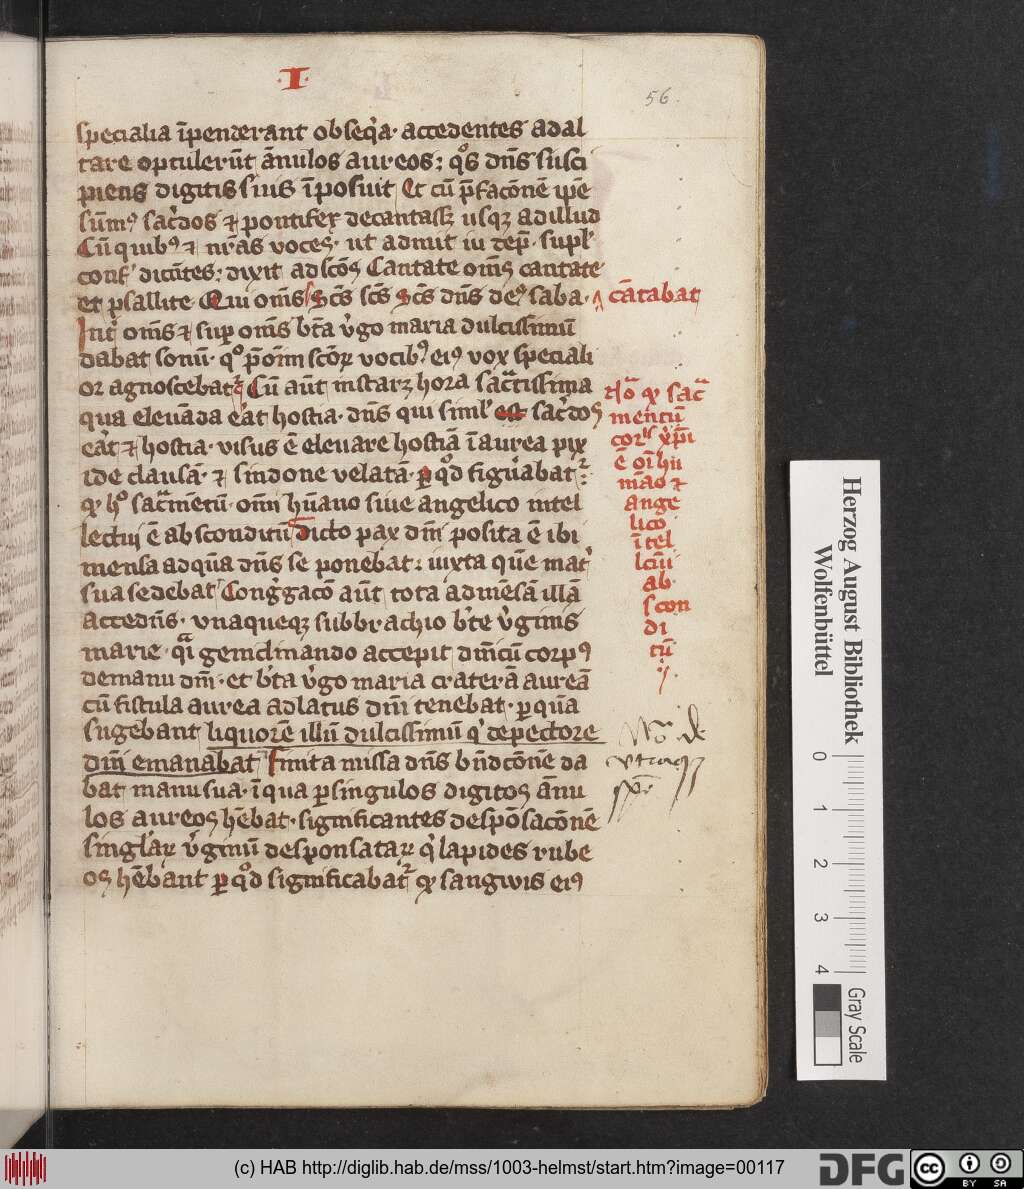 ·I·
56
specialia īpenderant obseq̾a· accedentes ad al
tare optulerūt ānulos aureos: q̊s dn̄s susci
piens digitis suis īposuit Et cū p̄facōnē ip̄e
sūm⁹ sac̾dos ⁊ pontifex decantassꝫ usqꝫ ad illud
Cū quib⁹ ⁊ nr̄as voces· ut admit iu dep̄· supl̾
conf̾ dicētes: dixit ad sc̄os Cantate om̄s cantate
et psallite Qui om̄s Sc̄s sc̄s Sc̄s dn̄s de⁹ saba·
cātabat
Int̾ om̄s ⁊ suꝑ om̄s bt̄a v̾go maria dulcissimū
dabat sonū· qº p̄ om̄m sc̄oꝝ vocib⁹ ei⁹ vox speciali
or agnoscebat̾ Cū aūt instarꝫ hora sac̾tissima
qua eleuāda e̾at hostia· dn̄s qui simil̾ est sac̾dos
e̾at ⁊ hostia· visus ē eleuare hostiā ī aurea pix
ide clausā· ⁊ sindone velatā· ꝑ qd̾ figurabat̾:
ꝙ hº sac̾mētū· omi hūano siue angelico intel
lectui ē absconditū Dicto pax dn̄i posita ē ibi
mensa ad quā dn̄s se ponebat: iuxta quē mat̾
sua sedebat Congg̾acō aūt tota ad mēsā illā
accedn̄s· vnaqueqꝫ sub brachio bt̄e v̾ginis
marie· q̾ genu clinando accepit dn̄icū corp⁹
de manu dn̄i· et bt̄a v̾go maria craterā aureā
cū fistula aurea ad latus dn̄i tenebat· ꝑ quā
sugebant liquorē illū dulcissimū q̾ de pectore
dn̄i emanabat Finita missa dn̄s bn̄dcōnē da
bat manu sua· ī qua ꝑ singulos digitos ānu
los aureos hēbat· significantes desponsacōnē
singlaꝝ v̾ginū desponsataꝝ q̾ lapides rube
os hēbant ꝑ qd̾ significabat̾ ꝙ sangwis ei⁹
Noᵃ ꝙ sac̾
mentū
corꝑis xp̄i
ē oī hu
māo ⁊
ange
lico
ītel
lcūi
ab
scon
di
tū
Noᵃ de
vtraqꝫ
spē
Herzog August Bibliothek
Wolfenbüttel
0 1 2 3 4
Gray Scale
(c) HAB http://diglib.hab.de/mss/1003-helmst/start.htm?image=00117
DFG
cc
BY SA